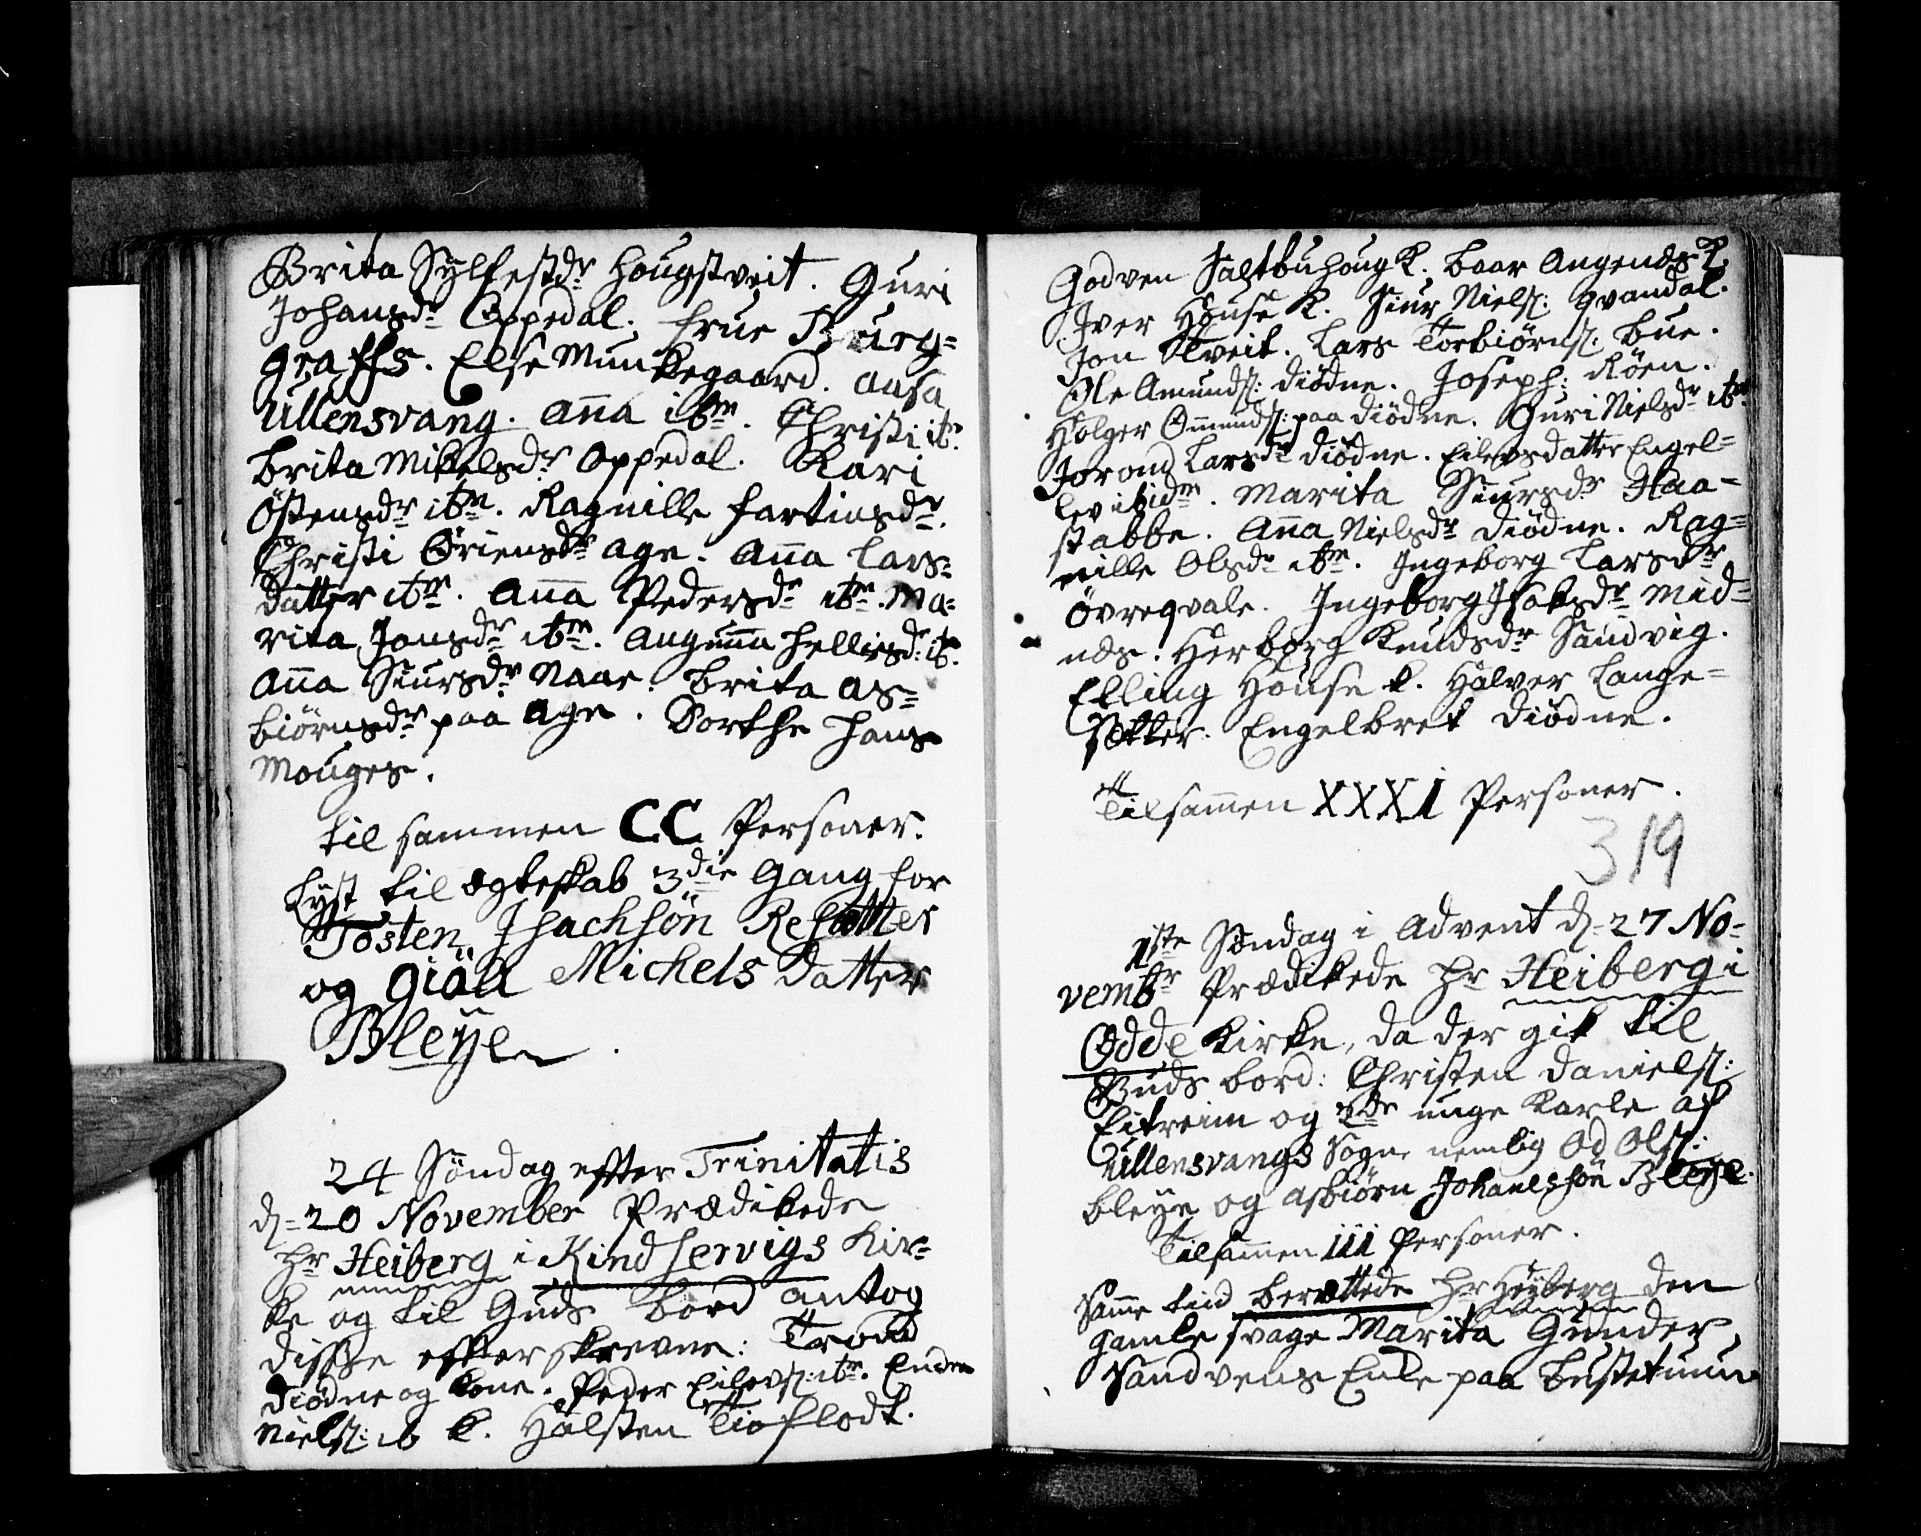 Brita Sylfestdr Hougstveit. Guri
Johansdr Oppedal. Frue Burg-
graffs. Else Munkegaard. Aasa
Ullensvang. Anna ibm. Christi ib.
Brita Mikelsdr Oppedal. Kari
Östensdr ibm. Ragnille Fartinsdr.
Christi Briensdr Age. Anna Lars-
datter ibm. Anna Pedersdr ibm. Ma-
rita Jonsdr ibm. Angunna Hellirsdr ib.
Anna Siursdr Naae. Brita As-
biörnsdr paa Age. Dorthe Hans
Mouges.
til sammen CC Personer.
Lyst til Ægteskab 3die Gang for
Tosten Isachsön Resætter
og Giöa Michels Datter
Bleÿe
24 Söndag efter Trinitatis
d. 20 November Prædikede
Hr Heiberg i Kindservigs Kir-
ke og til Guds bord antog
disse efterskrevne: Trond
Diödne og kone. Peder Eilevs: ibm. Enden
Niels: ib k. Halsten Tioflodt.
Godven Saltbuhoug K. Baar Angends K.
Iver House K. Siur Niels: Qvandal.
Jon Tveit. Lars Torbiörns: Bue.
Ole Amunds: Diödne. Joseph: Röen.
Holger Ommunds: paa Diödne. Guri Nielsdr ibm.
Jorond Larsdr Diödne. Eilevsdatter Engel-
lev ibidm. Marita Siursdr Haa-
stabbe. Anna Nielsdr Diödne. Rag-
nille Olsdr ibm. Ingeborg Larsdr
Övreqvale. Ingeborg Isaksdr Mid-
nes. Herborg Knudsdr Sandvig.
Elling House k. Halver Lange-
sætter. Engelbret Diödne.
Tilsammen XXXI Personer.
319
1ste Søndag i Advent d. 27 No-
vembr Prædikede Hr Heiberg i
Odde Kirke, da der gik til
Guds bord: Christen Daniels:
Eitreim og 2de unge Karle af
Ullensvangs Sogn nemlig Od Ols:
Bleye og Asbiörn Johanessön Bleÿe.
Tilsammen III Personer.
Samme tiid berættede Hr Heÿberg den
gamle svage Marita Gunders
Sandvens Enke paa Bustetuun